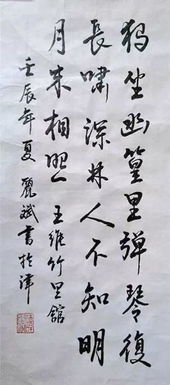 独坐幽篁里弹琴復
長嘯深林人不知明
月来相照 王维竹里館
壬辰年夏 麗斌書於津